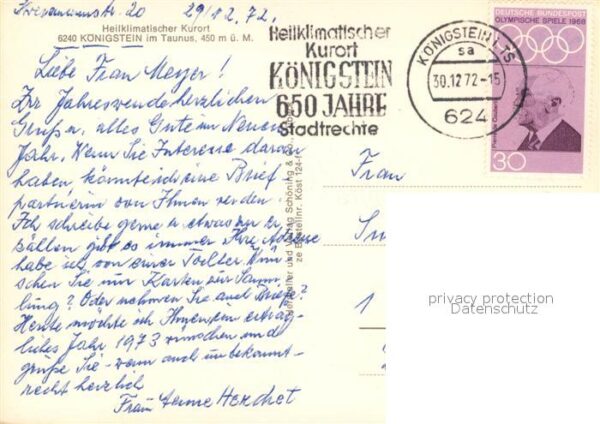 20 29/12.72.
Heilklimatischer Kurort
6240 KÖNIGSTEIN im Taunus, 450 m ü. M.
Liebe Frau Meyer!
Zur Jahreswende herzlichen
Gruß u. alles Gute im Neuen
Jahr. Wenn Sie Interesse daran
haben, könnte ich eine Brief
partnerin von Ihnen werden.
Ich schreibe gerne u. etwas zu er
zählen gibt es immer. Ihre Adresse
habe ich von einer Wün
schen Sie nur Karten zur Samm
lung? Oder nehmen Sie auch Briefe?
Heute möchte ich Ihnen ein
liches Jahr 1973 wünschen und
grüße Sie - wenn auch unbekannt -
recht herzlich
Frau Herchet
Heilklimatischer
Kurort
KÖNIGSTEIN
650 JAHRE
Stadtrechte
KÖNIGSTEIN 1, TS
sa
30.12.72-15
624
DEUTSCHE BUNDESPOST
OLYMPISCHE SPIELE 1968
30
und Verlag Schöning & Co
Bestellnr. Köst 124
Frau
1
privacy protection
Datenschutz